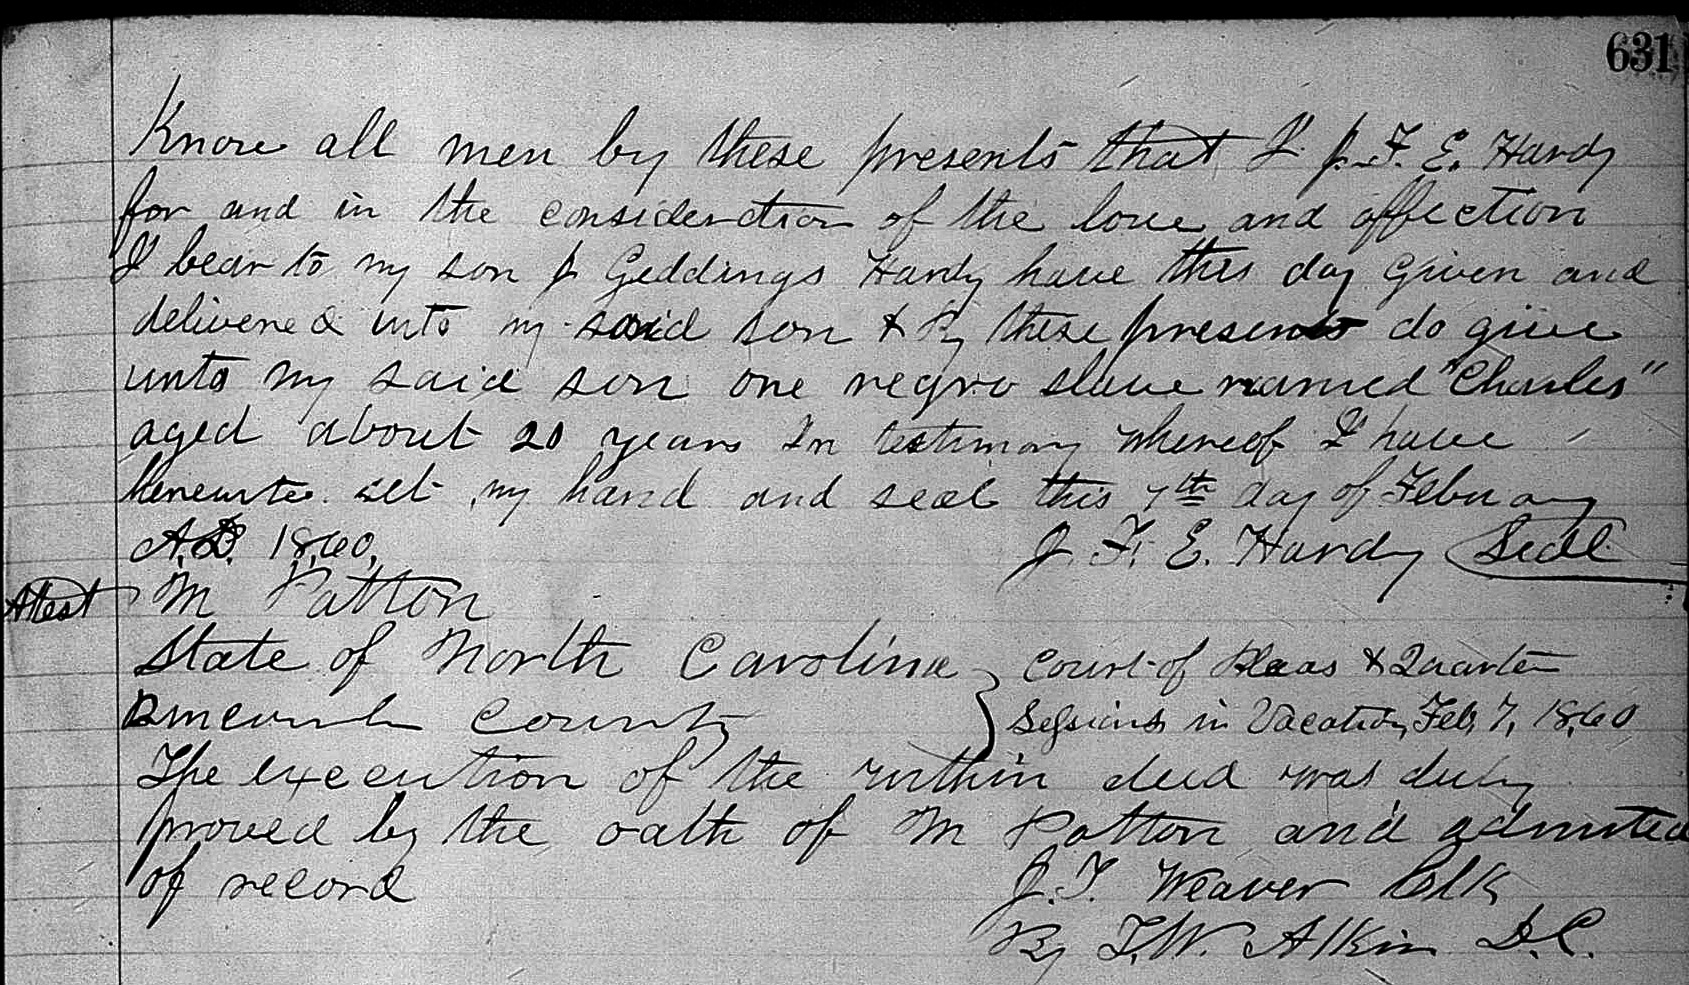 631
Know all men by these presents that I J. F. E. Hardy
for and in the consideration of the love and affection
I bear to my son J Geddings Hardy have this day given and
delivered unto my said son & By these presents do give
unto my said son one negro slave named "Charles"
aged about 20 years In testimony whereof I have
hereunto set my hand and seal this 7th day of February
A.D. 1860, J. F. E. Hardy Seal
Attest M Patton
State of North Carolina } Court of Pleas & Quarter
Buncombe County } Sessions in Vacation, Feb, 7, 1860
The execution of the within deed was duly
proved by the oath of M Patton and admitted
of record J. T. Weaver Clk
By T. W. Atkin D. C.